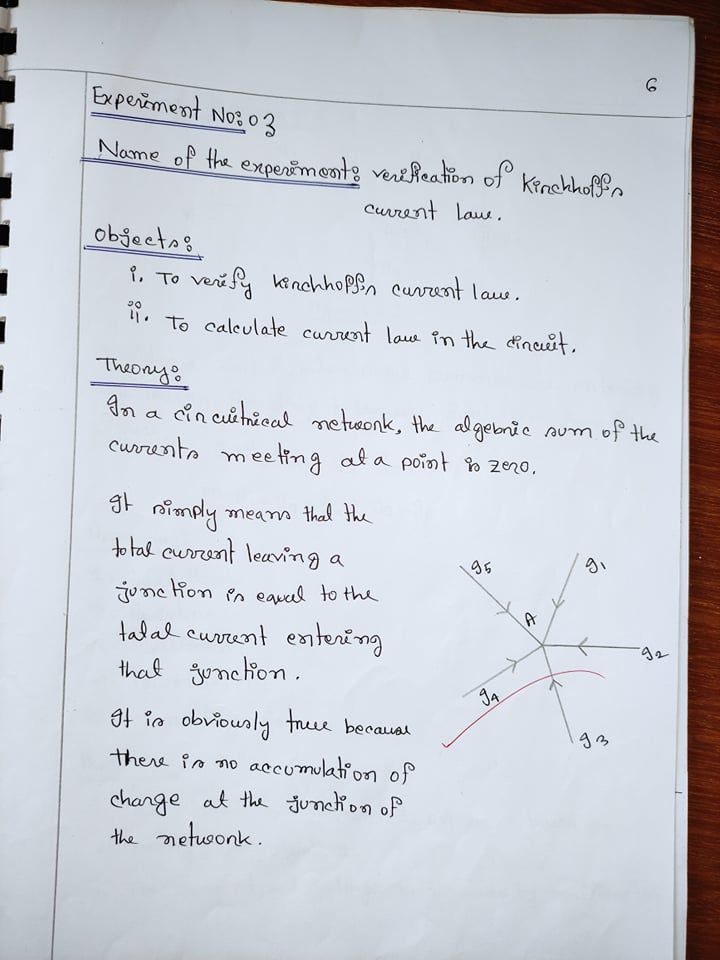 6
Experiment No: 03
Name of the experiment: verification of Kirchhoff's
current law.
Objects:
i. To verify kirchhoff's current law.
ii. To calculate current law in the circuit.
Theory:
In a circuitrical network, the algebric sum of the
currents meeting at a point is zero.
It simply means that the
total current leaving a
junction is equal to the
talal current entering
that junction.
It is obviously true because
there is no accumulation of
charge at the junction of
the network.
I5
I1
A
I2
I4
I3